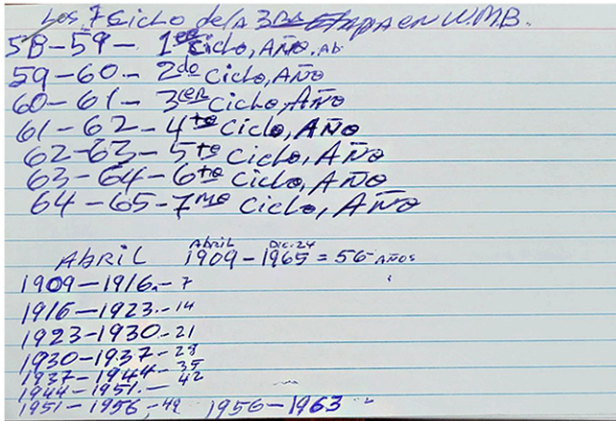 Los 7 Ciclo de la 3ra Etapa en W.M.B.
58-59- 1er Ciclo, AÑO. Ab
59-60- 2do Ciclo, AÑO
60-61- 3er Ciclo, AÑO
61-62-4to Ciclo, AÑO
62-63-5to Ciclo, AÑO
63-64-6to Ciclo, AÑO
64-65-7mo Ciclo, AÑO
Abril Dic. 24
ABRIL 1909-1965 = 56 AÑOS
1909-1916.- 7
1916-1923.-14
1923-1930.-21
1930-1937-28
1937-1944-35
1944-1951.- 42
1951-1956,-49 1956-1963